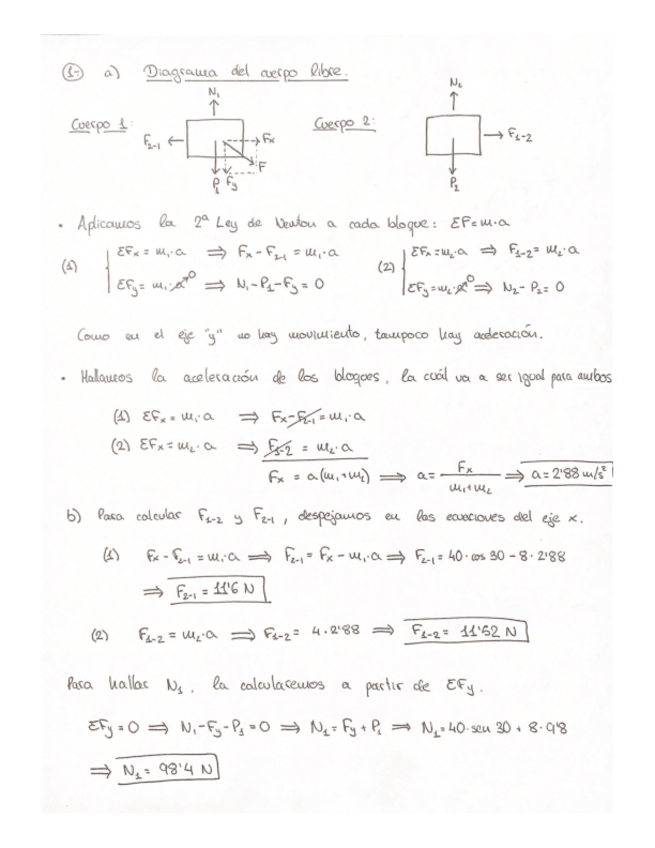 1- a) Diagrama del cuerpo libre.
Cuerpo 1:
N₁
F₂₋₁
Fx
F
P₁ Fy
Cuerpo 2:
N₂
F₁₋₂
P₂
· Aplicamos la 2ª Ley de Newton a cada bloque: ΣF=m·a
(1) ΣFx = m₁·a ⇒ Fx - F₂₋₁ = m₁·a
ΣFy = m₁·a⁰ ⇒ N₁-P₁-Fy = 0
(2) ΣFx=m₂·a ⇒ F₁₋₂= m₂·a
ΣFy=m₂·a⁰ ⇒ N₂- P₂= 0
Como en el eje "y" no hay movimiento, tampoco hay aceleración.
· Hallamos la aceleración de los bloques, la cuál va a ser igual para ambos
(1) ΣFx = m₁·a ⇒ Fx-F₂₋₁=m₁·a
(2) ΣFx = m₂·a ⇒ F₁₋₂ = m₂·a
Fx = a(m₁+m₂) ⇒ a= Fx / m₁+m₂ ⇒ a=2'88 m/s²
b) Para calcular F₁₋₂ y F₂₋₁, despejamos en las ecuaciones del eje x.
(1) Fx - F₂₋₁ = m₁·a ⇒ F₂₋₁ = Fx - m₁·a ⇒ F₂₋₁ = 40·cos 30 - 8·2'88
⇒ F₂₋₁ = 11'6 N
(2) F₁₋₂ = m₂·a ⇒ F₁₋₂= 4·2'88 ⇒ F₁₋₂= 11'52 N
Para hallar N₁, la calcularemos a partir de ΣFy.
ΣFy = 0 ⇒ N₁-Fy-P₁=0 ⇒ N₁= Fy + P₁ ⇒ N₁=40·sen 30 + 8·9'8
⇒ N₁= 98'4 N